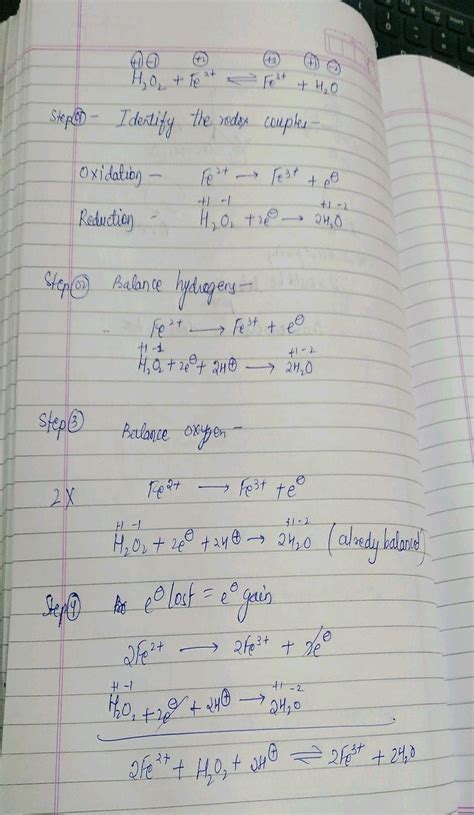 +1 -1 +2 +3 +1 -2
H₂O₂ + Fe²⁺ ⇌ Fe³⁺ + H₂O
Step 01 - Identify the redox couples -
Oxidation - Fe²⁺ → Fe³⁺ + e⊖
+1 -1 +1 -2
Reduction - H₂O₂ + 2e⊖ → 2H₂O
Step 02 Balance hydrogens -
Fe²⁺ → Fe³⁺ + e⊖
+1 -1 +1 -2
H₂O₂ + 2e⊖ + 2H⊕ → 2H₂O
Step 3 Balance oxygen -
2X Fe²⁺ → Fe³⁺ + e⊖
+1 -1 +1 -2
H₂O₂ + 2e⊖ + 2H⊕ → 2H₂O (already balanced)
Step 4 e⊖ lost = e⊖ gain
2Fe²⁺ → 2Fe³⁺ + 2e⊖
+1 -1 +1 -2
H₂O₂ + 2e⊖ + 2H⊕ → 2H₂O
2Fe²⁺ + H₂O₂ + 2H⊕ ⇌ 2Fe³⁺ + 2H₂O